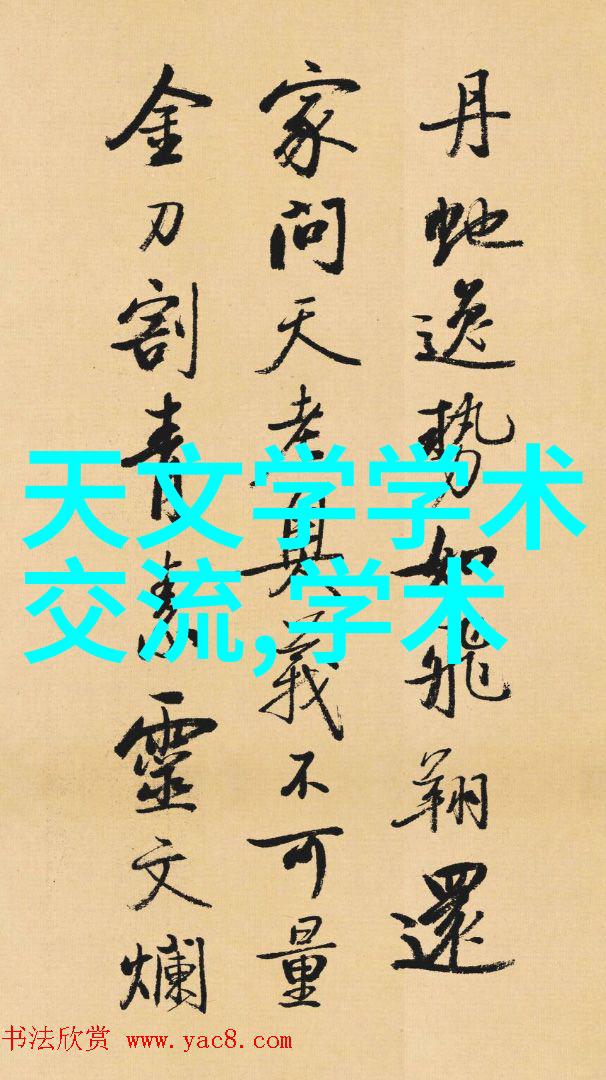 丹虵逸勢如飛翔還
家問天老奧義不可量
金刀割青素靈文爛
天文学学术
交流,学术
书法欣赏 www.yac8.com